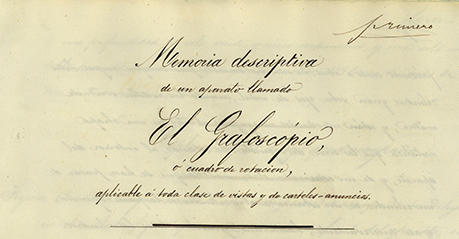 primero
Memoria descriptiva
de un aparato llamado
El Grafoscópio,
ó cuadro de rotacion,
aplicable á toda clase de vistas y de carteles-anuncios.